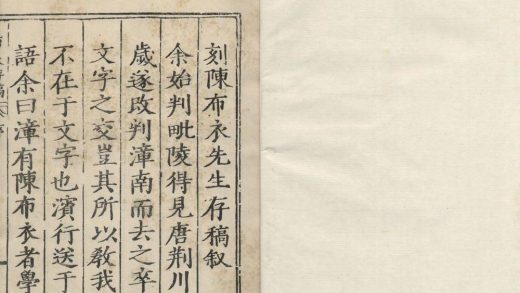 刻陳布衣先生存稿叙
余始判毗陵得見唐荆川
歲遂改判漳南而去之卒
文字之交豈其所以敎我
不在于文字也濱行送于
語余曰漳有陳布衣者學